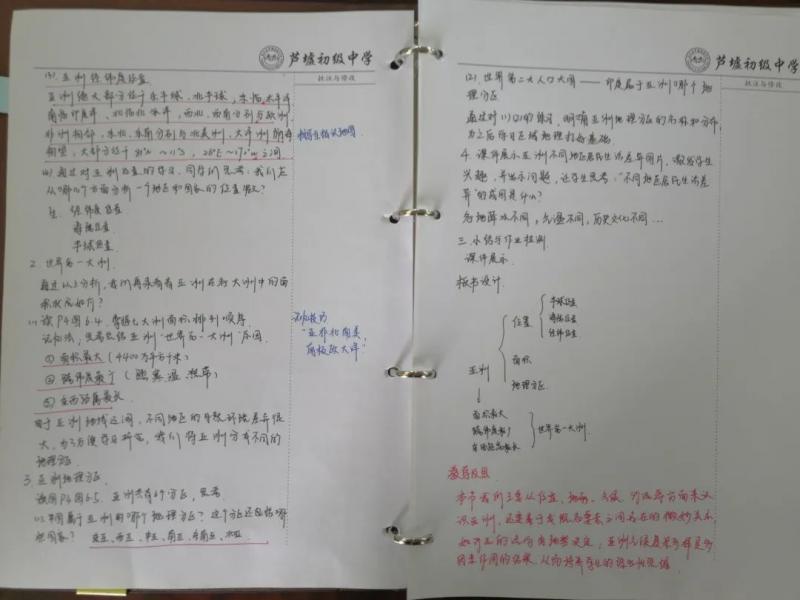 芦墟初级中学
批注与修改
(3) 亚洲经纬度位置
亚洲绝大部分位于东半球、北半球，东临太平洋
南临印度洋、北临北冰洋，西北、西南分别与欧洲、
非洲相邻，东北、东南分别与北美洲、大洋洲
相望，大部分位于
指导学生指认地图
(4) 通过对亚洲位置的学习，同学们思考：我们应
从哪几个方面分析一个地区和国家的位置
经纬度位置
海陆位置
半球位置
2. 世界第一大洲
通过以上分析，我们再来看看亚洲在七大洲中的面
积状况如何？
(1) 读P4图6.4，掌握七大洲面积排列顺序
记忆法，思考总结亚洲“世界第一大洲”原因
记忆技巧
“亚非北南美
南极欧大洋”
① 面积最大（4400万平方千米）
② 跨纬度最广（热带）
③ 东西距离最长
由于亚洲地域辽阔，不同地区的自然环境差异很
大，为了方便学习研究，我们将亚洲分成不同的
地理分区
3. 亚洲地理分区
读图P6图6.5，亚洲共有6个分区，思考
(1) 中国属于亚洲的哪个地理分区？这个分区还包括哪
些国家？
东亚、西亚、中亚、南亚、东南亚、北亚
芦墟初级中学
批注与修改
(2) 世界第二大人口大国——印度属于亚洲哪个地
理分区
通过对(1)(2)的练习，明确亚洲地理分区的名称和分布
为之后学习区域地理打好基础
4. 课件展示亚洲不同地区居民生活差异图片，激发学生
兴趣，并出示问题，让学生思考：“不同地区居民生活差
异”的成因是什么？
各地降水不同，气温不同，历史文化不同…
三. 小结与作业检测
课件展示
板书设计
亚洲
位置
半球位置
海陆位置
经纬位置
面积
地理分区
面积最大
跨纬度最广
东西距离最长
世界第一大洲
教学反思
本节我们主要从位置、地形、气候、河流等方面来认
识亚洲，还要善于发现各要素之间存在的微妙关系
如河流的流向由地势决定，亚洲气候复杂多样是多
因素作用的结果，从而培养学生的综合